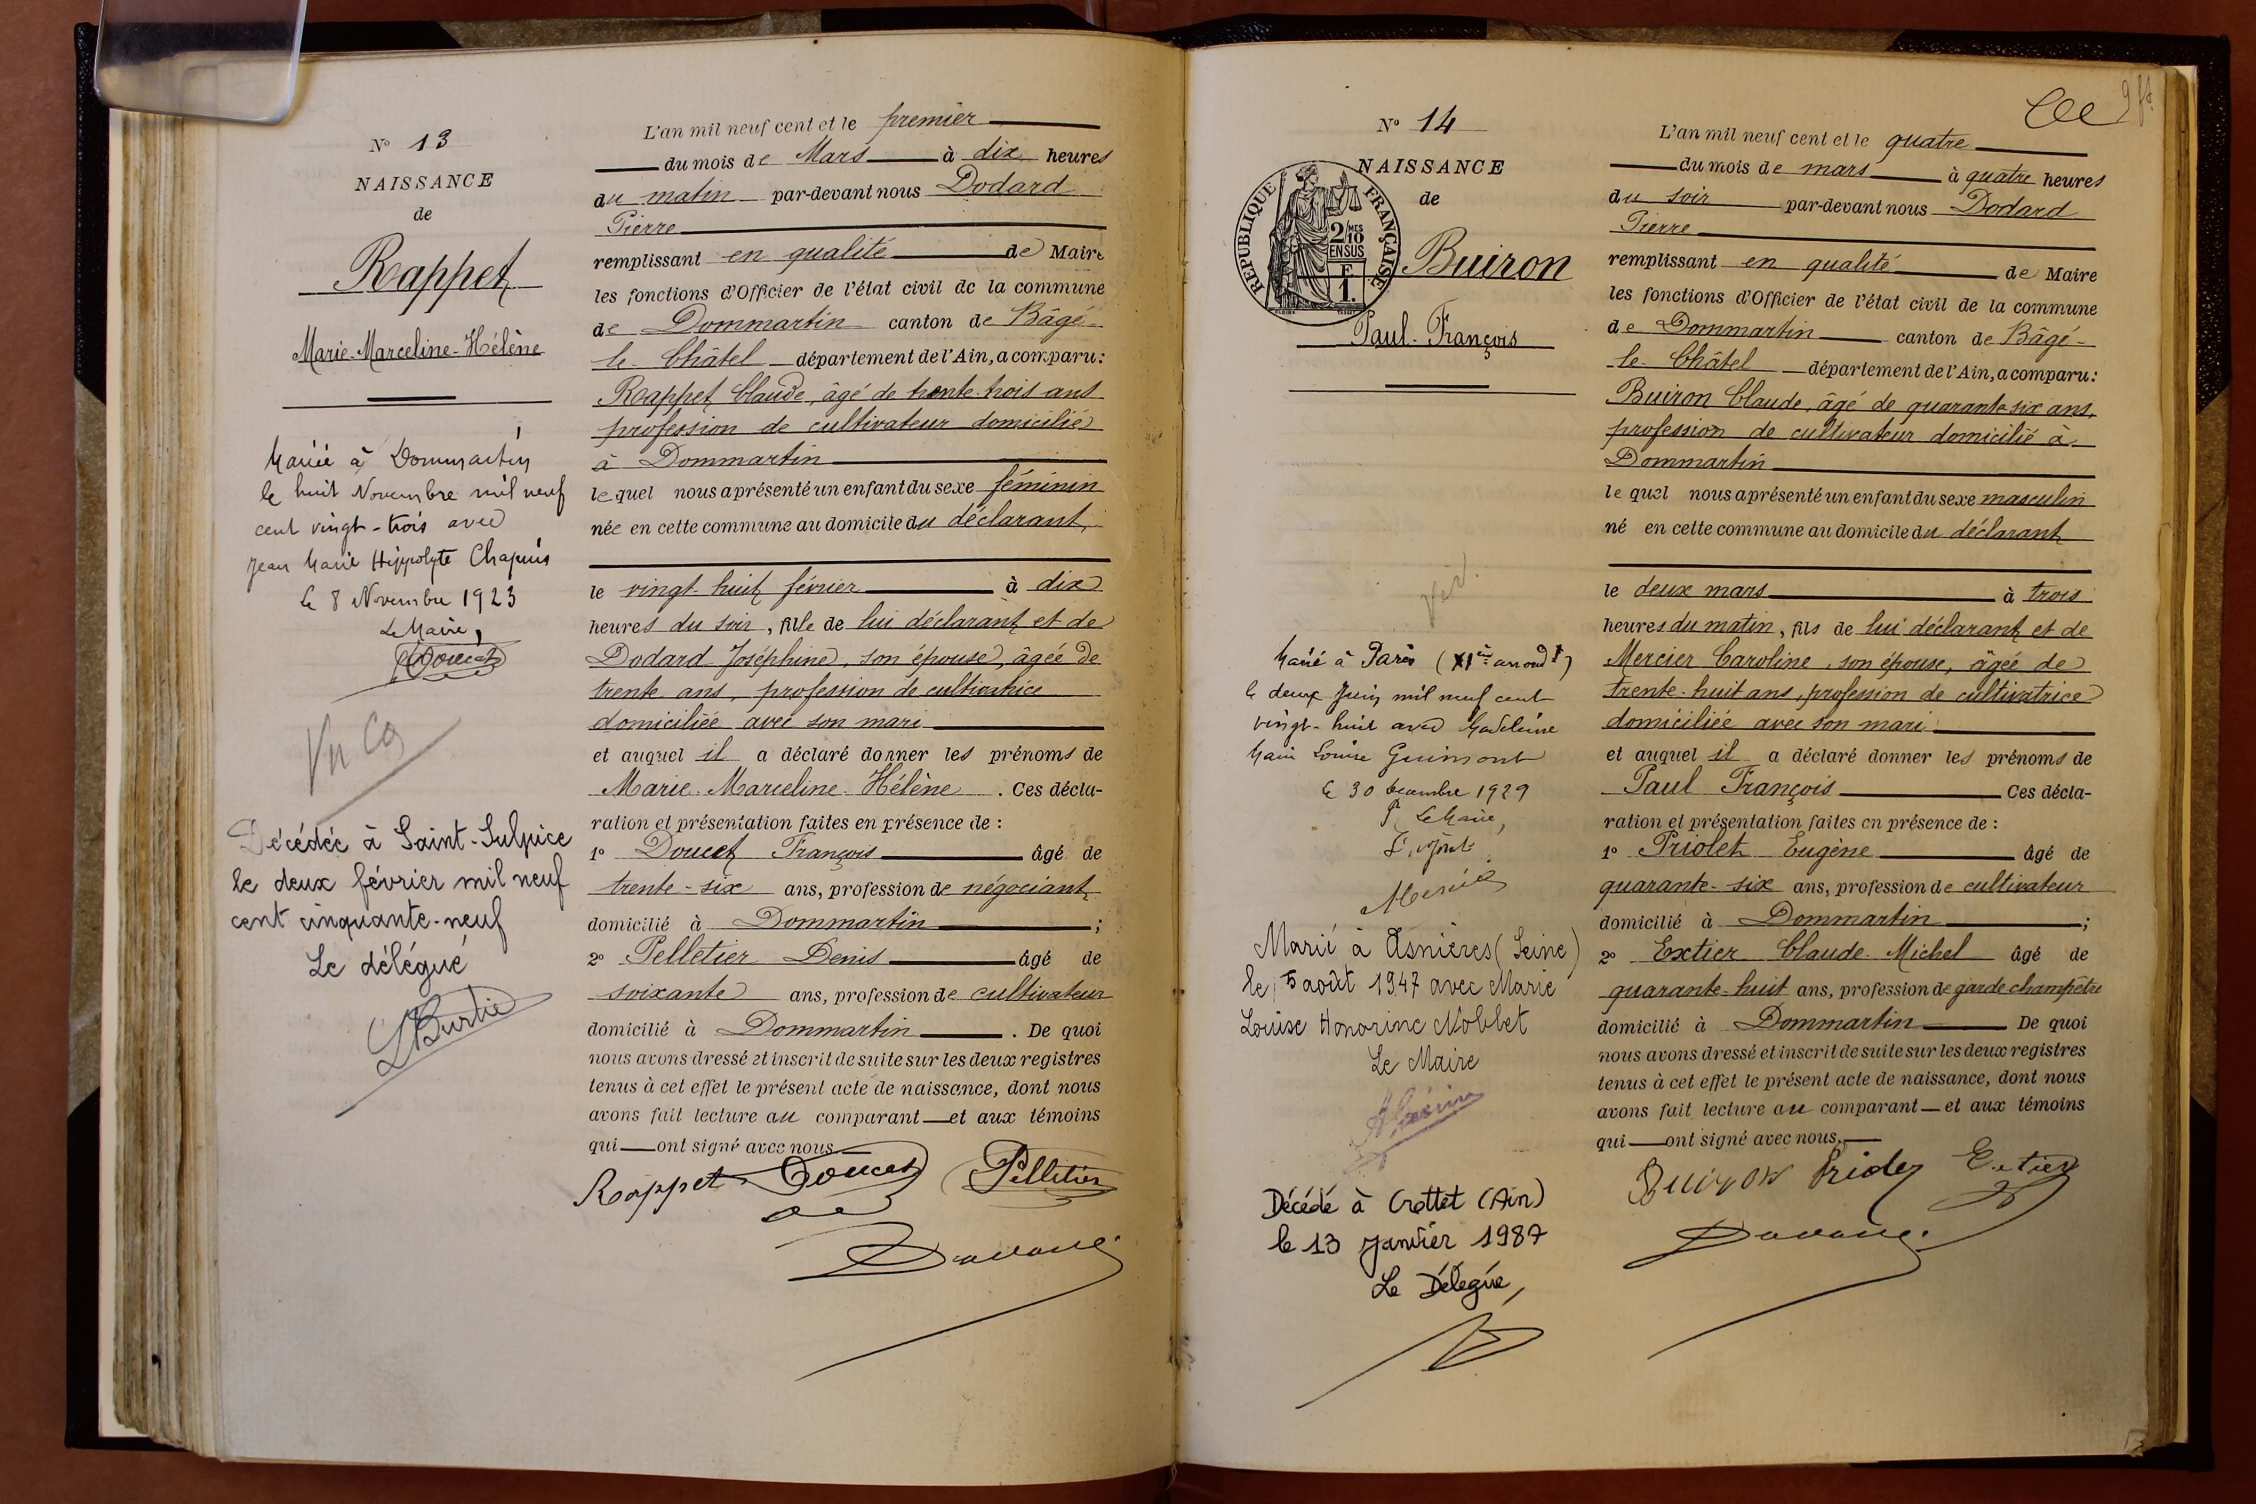 N° 13
NAISSANCE
de
Rappet
Marie-Marceline-Hélène
Mariée à Dommartin
le huit Novembre mil neuf
cent vingt-trois avec
Jean Marie Hippolyte Chapuis
le 8 Novembre 1923
Le Maire,
Doucet
Décédée à Saint-Sulpice
le deux février mil neuf
cent cinquante-neuf
Le délégué
L'an mil neuf cent et le premier
du mois de Mars à dix heures
du matin par-devant nous Dodard
Pierre
remplissant en qualité de Maire
les fonctions d'Officier de l'état civil de la commune
de Dommartin canton de Bâgé-
le-Châtel département de l'Ain, a comparu:
Rappet Claude, âgé de trente-trois ans
profession de cultivateur domicilié
à Dommartin
lequel nous a présenté un enfant du sexe féminin
née en cette commune au domicile du déclarant,
le vingt-huit février à dix
heures du soir, fille de lui déclarant et de
Dodard Joséphine, son épouse, âgée de
trente ans, profession de cultivatrice
domiciliée avec son mari
et auquel il a déclaré donner les prénoms de
Marie-Marceline-Hélène. Ces décla-
ration et présentation faites en présence de :
1° Doucet François âgé de
trente-six ans, profession de négociant
domicilié à Dommartin ;
2° Pelletier Denis âgé de
soixante ans, profession de cultivateur
domicilié à Dommartin. De quoi
nous avons dressé et inscrit de suite sur les deux registres
tenus à cet effet le présent acte de naissance, dont nous
avons fait lecture au comparant et aux témoins
qui ont signé avec nous
Rappet Doucet Pelletier
N° 14
NAISSANCE
de
RÉPUBLIQUE FRANÇAISE
2/10 MES
EN SUS
F
1.
Buiron
Paul-François
Marié à Paris (XIè arrondt)
le deux Juin mil neuf cent
vingt-huit avec Madeleine
Marie Louise Guimont
le 30 décembre 1929
P. Le Maire,
L'adjoint
Marié à Asnières (Seine)
le 5 août 1947 avec Marie
Louise Honorine Noblet
Le Maire
Décédé à Crottet (Ain)
le 13 janvier 1987
Le Délégué,
L'an mil neuf cent et le quatre
du mois de mars à quatre heures
du soir par-devant nous Dodard
Pierre
remplissant en qualité de Maire
les fonctions d'Officier de l'état civil de la commune
de Dommartin canton de Bâgé-
le-Châtel département de l'Ain, a comparu:
Buiron Claude, âgé de quarante-six ans,
profession de cultivateur domicilié à
Dommartin
lequel nous a présenté un enfant du sexe masculin
né en cette commune au domicile du déclarant
le deux mars à trois
heures du matin, fils de lui déclarant et de
Mercier Caroline, son épouse, âgée de
trente-huit ans, profession de cultivatrice
domiciliée avec son mari
et auquel il a déclaré donner les prénoms de
Paul François Ces décla-
ration et présentation faites en présence de :
1° Priolet Eugène âgé de
quarante-six ans, profession de cultivateur
domicilié à Dommartin ;
2° Extier Claude-Michel âgé de
quarante-huit ans, profession de garde champêtre
domicilié à Dommartin De quoi
nous avons dressé et inscrit de suite sur les deux registres
tenus à cet effet le présent acte de naissance, dont nous
avons fait lecture au comparant et aux témoins
qui ont signé avec nous.
Buiron